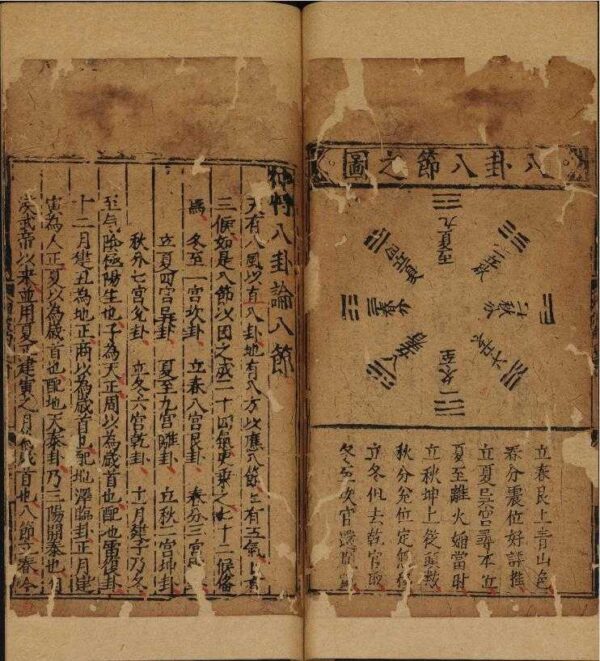 八卦八節之圖
夏至九
立秋二
秋分七
立冬六
冬至一
立春八
春分三
立夏四
立春艮上青山色
春分震位好詳推
立夏巽宮尋本
夏至離火焰當時
立秋坤上後頭
秋分兌位定無
立冬但去乾宮取
冬至坎宮深
八卦論八節
天有八風以直八卦地有八方以應八節節有三氣氣有
三候如是八節以因之成二十四氣更乘之七十二候備
焉 冬至一宮坎卦 立春八宮艮卦 春分三宮
立夏四宮巽卦 夏至九宮離卦 立秋二宮坤卦
秋分七宮兌卦 立冬六宮乾卦 十一月建子乃冬
至之氣陰極陽生也子為天正周以為歲首也配地雷復卦
十二月建丑為地正商以為歲首也配地澤臨卦正月建
寅為人正夏以為歲首也配地天泰卦乃三陽開泰也自
漢武帝以來並用夏正建寅之月為歲首也八節立春